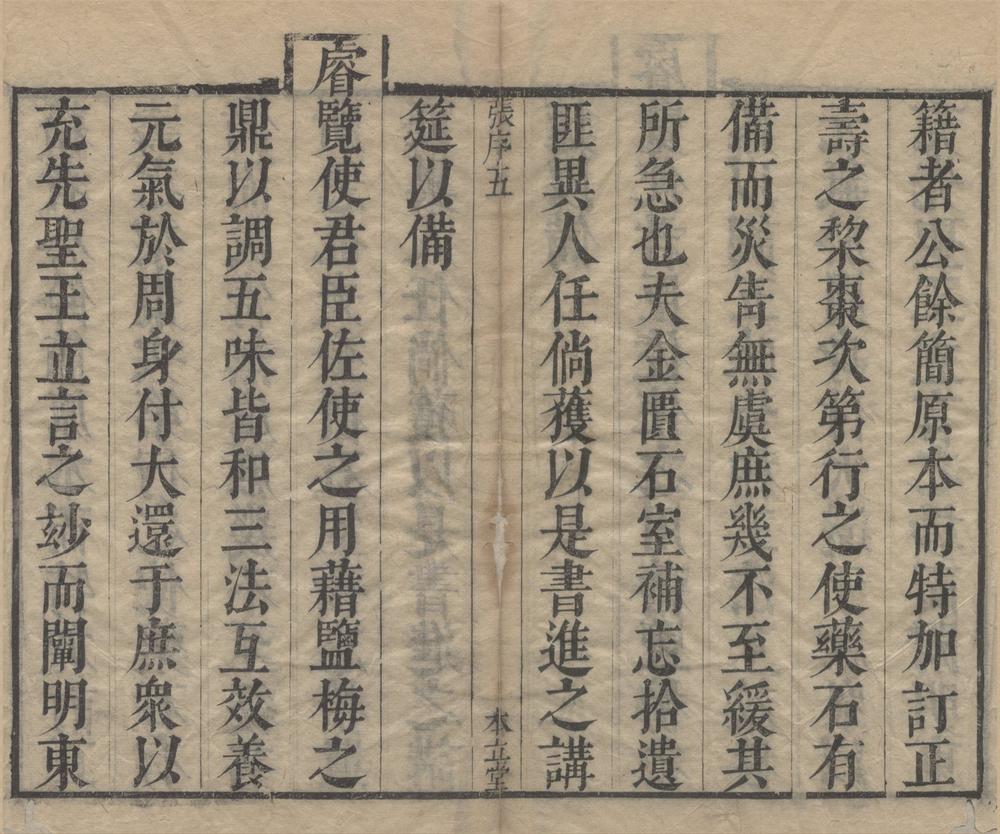 籍者公餘簡原本而特加訂正
壽之棃棗次第行之使藥石有
備而災眚無虞庶幾不至緩其
所急也夫金匱石室補忘拾遺
匪異人任倘獲以是書進之講
張序五
本立堂
筵以備
睿覽使君臣佐使之用藉鹽梅之
鼎以調五味皆和三法互效養
元氣於周身付大還于庶衆以
充先聖王立言之玅而闡明東